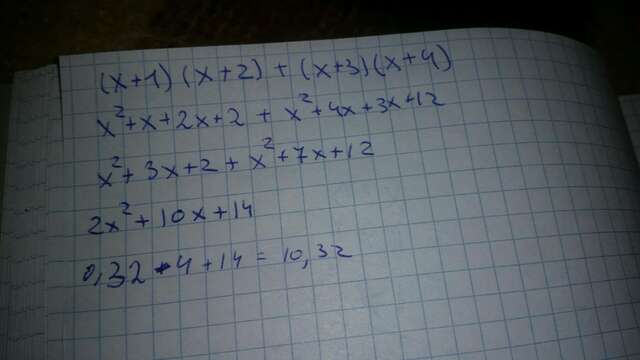 (x+1)(x+2)+(x+3)(x+4)
x²+x+2x+2+x²+4x+3x+12
x²+3x+2+x²+7x+12
2x²+10x+14
0,32-4+14=10,32